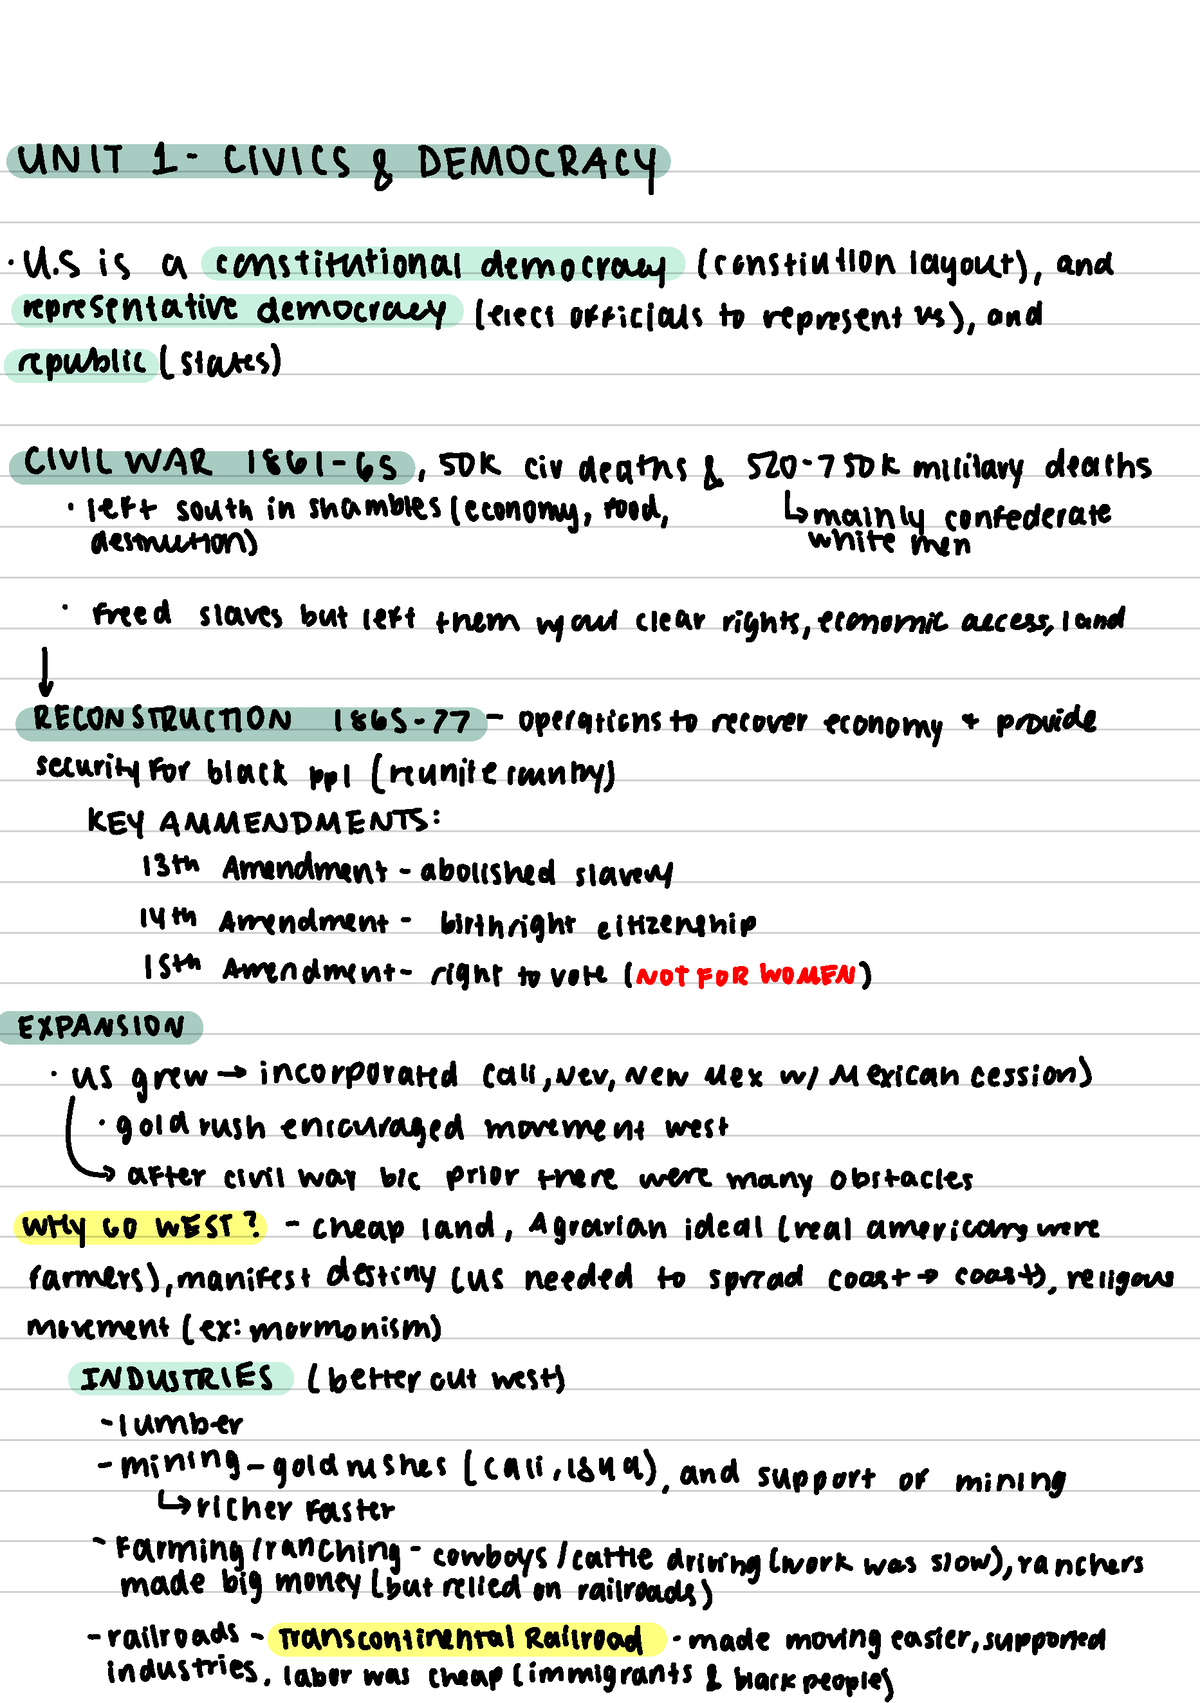 UNIT 1 - CIVICS & DEMOCRACY
· U.S is a constitutional democracy (constiution layout), and
representative democracy (elect officials to represent us), and
republic (states)
CIVIL WAR 1861-65, 50K civ deaths & 520-750K military deaths
· left south in shambles (economy, food, ↳ mainly confederate
destruction) white men
· Freed slaves but left them w/out clear rights, economic access, land
↓
RECONSTRUCTION 1865-77 - operations to recover economy + provide
security for black ppl (reunite country)
KEY AMMENDMENTS:
13th Amendment - abolished slavery
14th Amendment - birthright citizenship
15th Amendment - right to vote (NOT FOR WOMEN)
EXPANSION
· US grew → incorporated Cali, Nev, New Mex w/ Mexican cession)
· gold rush encouraged movement west
→ after civil war b/c prior there were many obstacles
WHY GO WEST? - cheap land, Agrarian ideal (real americans were
farmers), manifest destiny (US needed to spread coast → coast), religous
movement (ex: mormonism)
INDUSTRIES (better out west)
- lumber
- mining - gold rushes (cali, 1849), and support of mining
↳ richer faster
- Farming/ranching - cowboys/cattle driving (work was slow), ranchers
made big money (but relied on railroads)
- railroads - Transcontinental Railroad · made moving easier, supported
industries, labor was cheap (immigrants & black people)